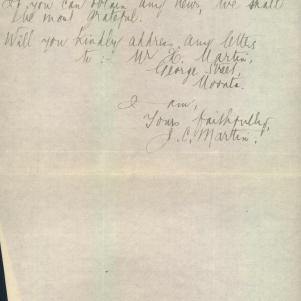 If you can obtain any news, we shall
be most grateful.
Will you kindly address any letters
to :- Mr H. Martin,
George Street,
Moonta.
I am,
Yours faithfully,
J. C. Martin.